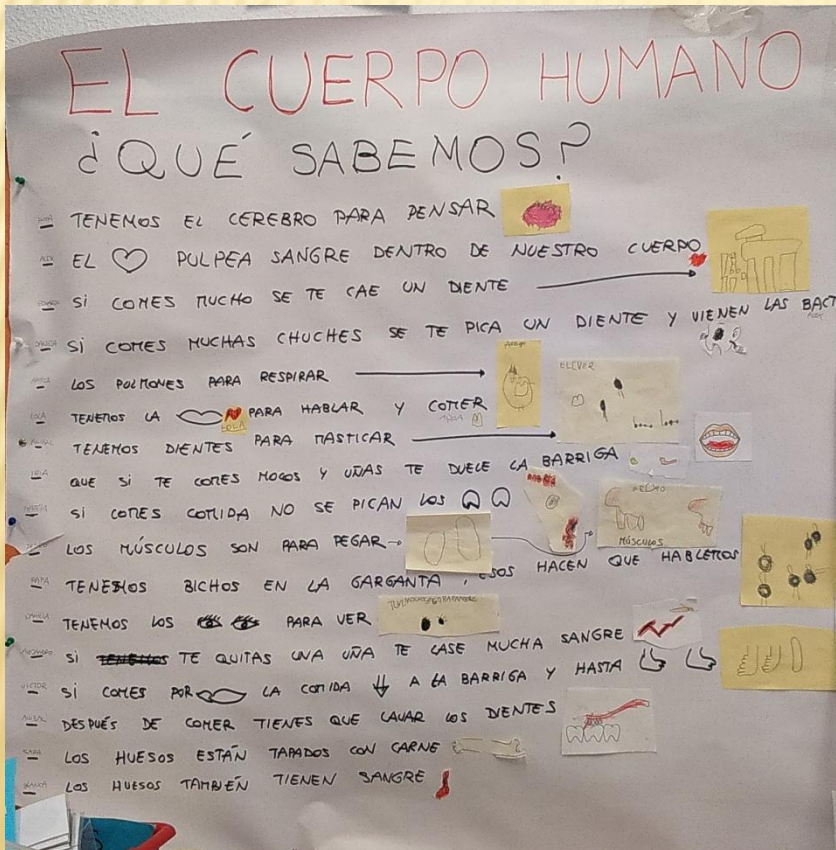 EL CUERPO HUMANO
¿QUÉ SABEMOS?
TENEMOS EL CEREBRO PARA PENSAR
ALEX EL PULPEA SANGRE DENTRO DE NUESTRO CUERPO
SI COMES MUCHO SE TE CAE UN DIENTE
SI COMES MUCHAS CHUCHES SE TE PICA UN DIENTE Y VIENEN LAS BACT
LOS PULMONES PARA RESPIRAR
LOLA TENEMOS LA LOLA PARA HABLAR Y COMER
TENEMOS DIENTES PARA MASTICAR
QUE SI TE COMES MOCOS Y UÑAS TE DUELE LA BARRIGA
SI COMES COMIDA NO SE PICAN LOS
LOS MÚSCULOS SON PARA PEGAR
MÚSCULOS
TENEMOS BICHOS EN LA GARGANTA, ESOS HACEN QUE HABLEMOS
TENEMOS LOS PARA VER
SI TENEMOS TE QUITAS UNA UÑA TE LASE MUCHA SANGRE
VICTOR SI COMES POR LA COMIDA A LA BARRIGA Y HASTA
DESPUÉS DE COMER TIENES QUE LAVAR LOS DIENTES
SARA LOS HUESOS ESTÁN TAPADOS CON CARNE
BLANCA LOS HUESOS TAMBIÉN TIENEN SANGRE